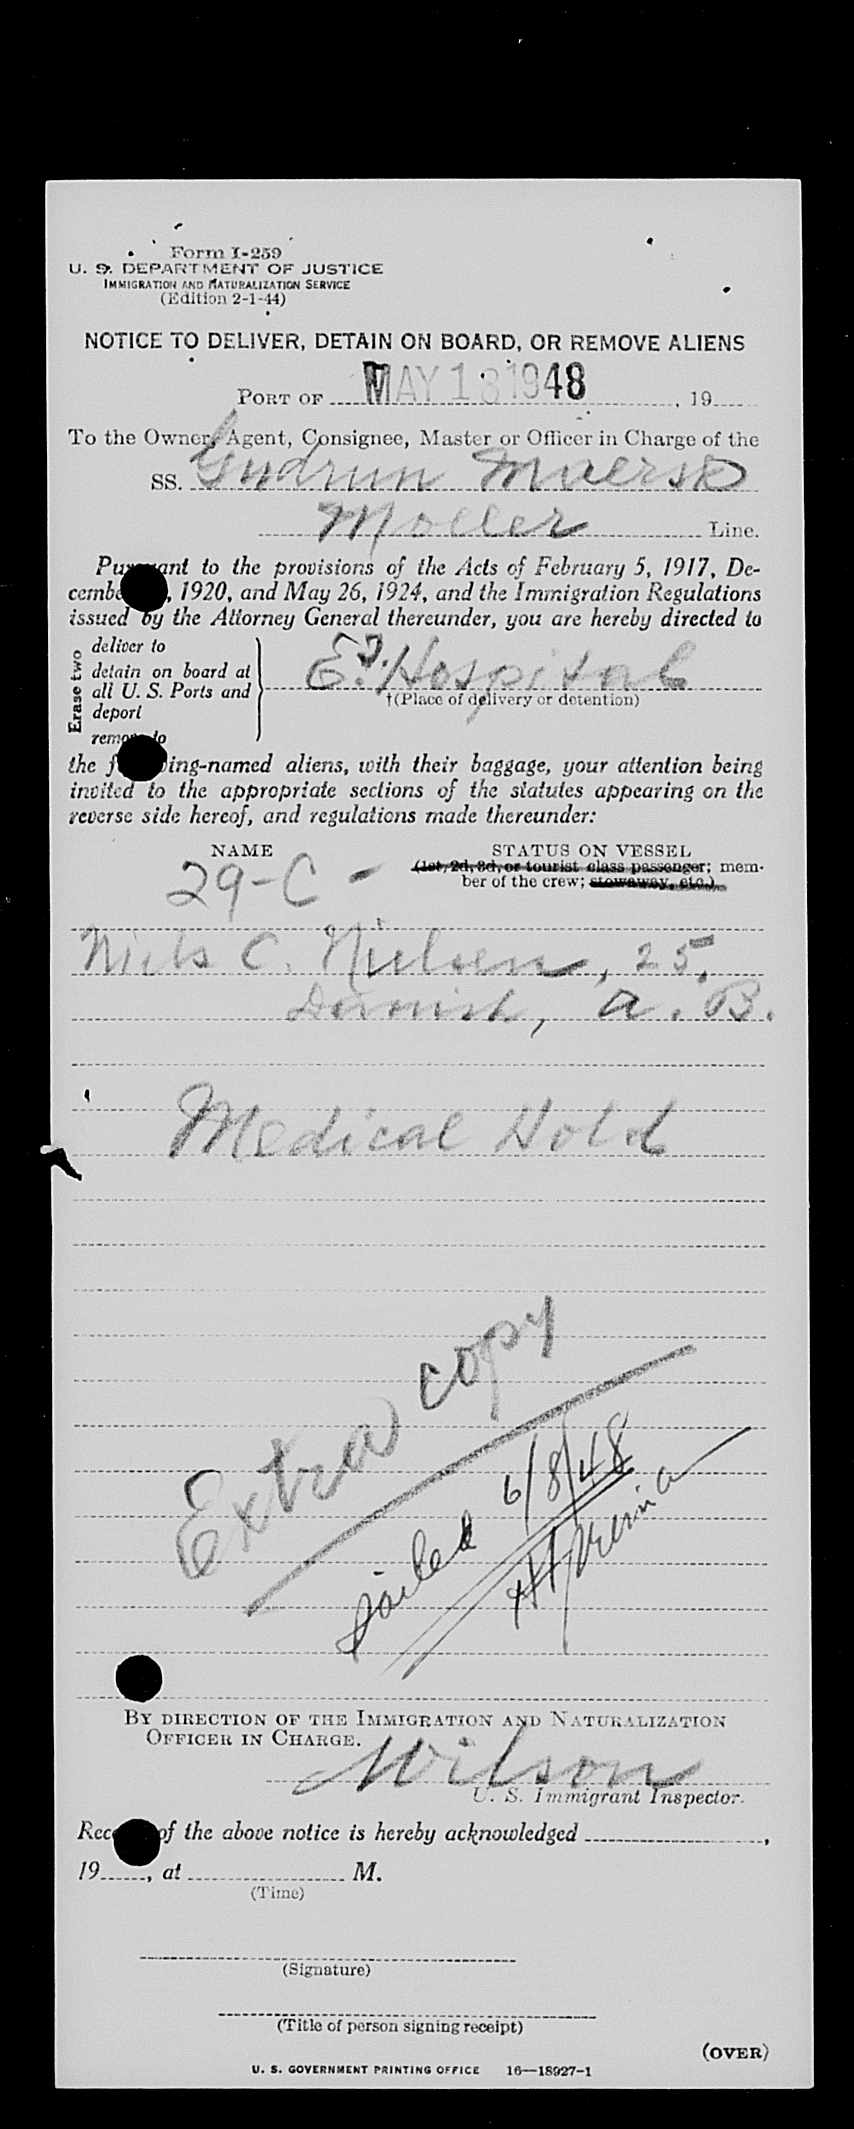 Form I-259
U. S. DEPARTMENT OF JUSTICE
IMMIGRATION AND NATURALIZATION SERVICE
(Edition 2-1-44)
NOTICE TO DELIVER, DETAIN ON BOARD, OR REMOVE ALIENS
PORT OF MAY 18 1948, 19
To the Owner, Agent, Consignee, Master or Officer in Charge of the
SS. Gudrun Maersk
Moller Line.
Pursuant to the provisions of the Acts of February 5, 1917, De-
cember, 1920, and May 26, 1924, and the Immigration Regulations
issued by the Attorney General thereunder, you are hereby directed to
Erase two
deliver to
detain on board at
all U. S. Ports and
deport
remove to
E.I. Hospital
†(Place of delivery or detention)
the following-named aliens, with their baggage, your attention being
invited to the appropriate sections of the statutes appearing on the
reverse side hereof, and regulations made thereunder:
NAME STATUS ON VESSEL
(1st, 2d, 3d, or tourist class passenger; mem-
ber of the crew; stowaway, etc.)
29-C-
Niels C. Nielsen, 25,
Danish, A.B.
Medical Hold
Extra copy
Sailed 6/8/48
BY DIRECTION OF THE IMMIGRATION AND NATURALIZATION
OFFICER IN CHARGE.
Wilson
U. S. Immigrant Inspector.
Receipt of the above notice is hereby acknowledged ,
19 , at M.
(Time)
(Signature)
(Title of person signing receipt)
(OVER)
U. S. GOVERNMENT PRINTING OFFICE 16—18927-1